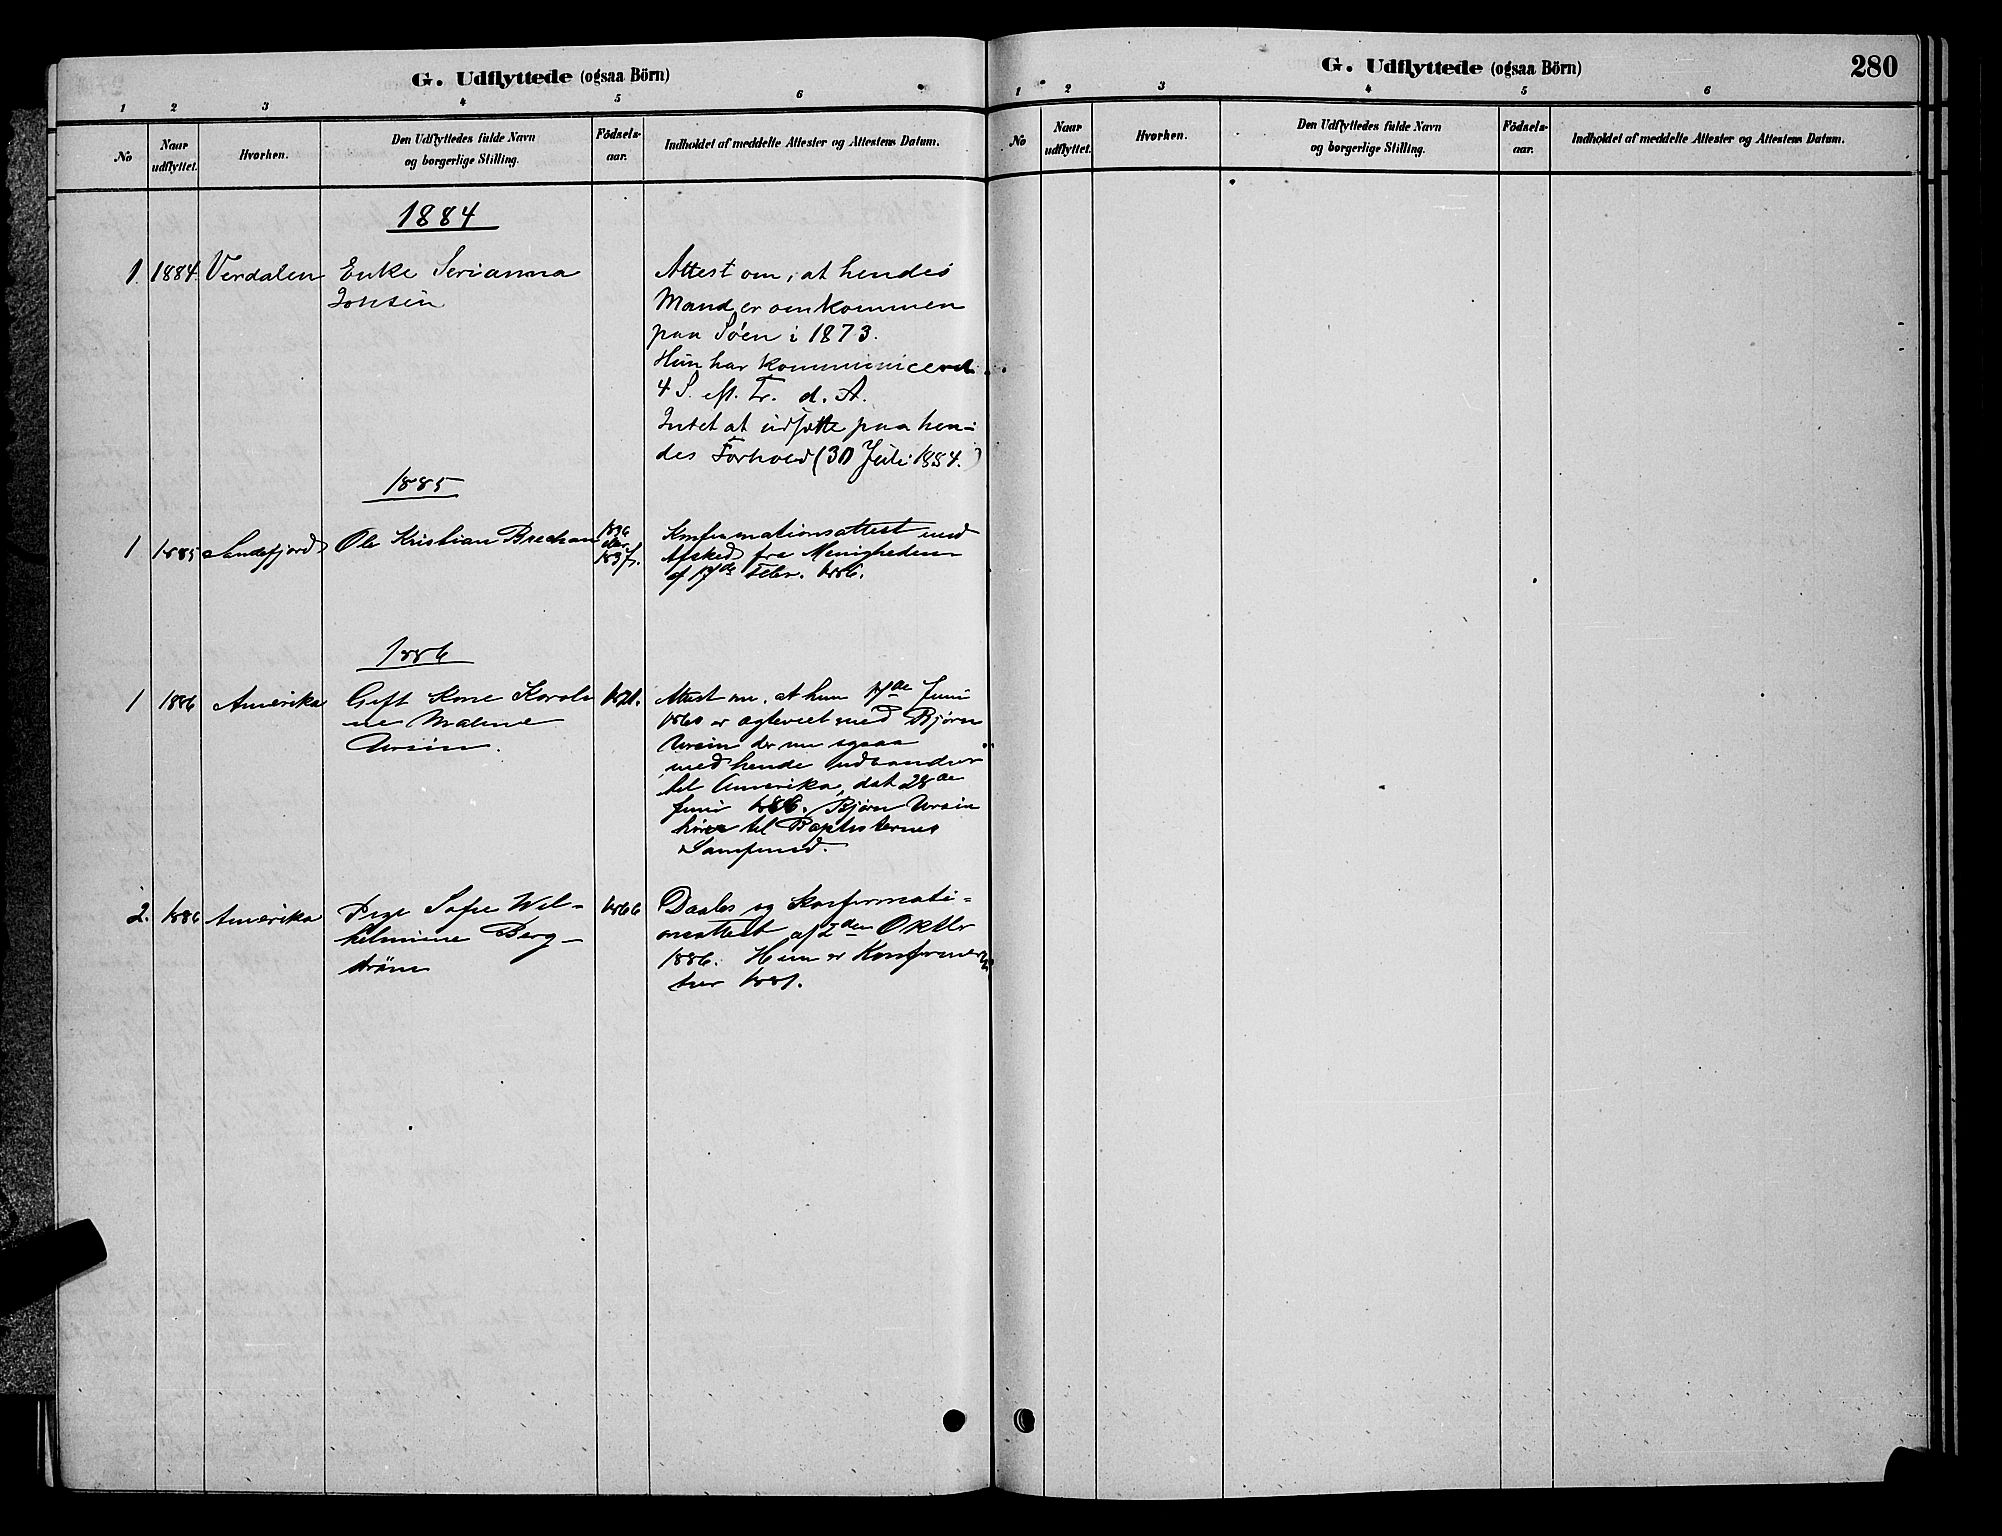 G. Udflyttede (ogsaa Börn)
1 2 3 4 5 6
No
Naar udflyttet.
Hvorhen.
Den Udflyttedes fulde Navn og borgerlige Stilling.
Födsels-aar.
Indholdet af meddelte Attester og Attestens Datum.
1884
1. 1884. Verdalen
Enke Serianna
Jonsen
Attest om, at hendes
Mand er omkommen
paa Søen i 1873.
Hun har kommuniceret
4 S. eft. Tr. d. A.
Intet at udsætte paa hen-
des Forhold (30 Juli 1884.)
1885
1 1885 Sandefjord
Ole Kristian Brechan
1836
eller
1837.
Konfirmationsattest med
Afsked fra Menigheden
af 17de Febr. 1886.
1886
1 1886 Amerika
Gift Kone Karoli-
ne Maline
Ursin.
1821.
Attest om, at hun 17de Juni
1860 er ægteviet med Bjørn
Ursin der nu ogsaa
med hende udvandrer
til Amerika, dat 28de
Juni 1886. Bjørn Ursin
hører til Baptisternes
Samfund.
2. 1886 Amerika
Pige Sofie Wil-
helmine Berg-
strøm
1866
Daabs og Konfirmati-
onsattest af 2den Oktbr
1886. Hun er Konfirmeret
her 1881.
G. Udflyttede (ogsaa Börn)
280
1 2 3 4 5 6
No
Naar udflyttet.
Hvorhen.
Den Udflyttedes fulde Navn og borgerlige Stilling.
Födsels-aar.
Indholdet af meddelte Attester og Attestens Datum.